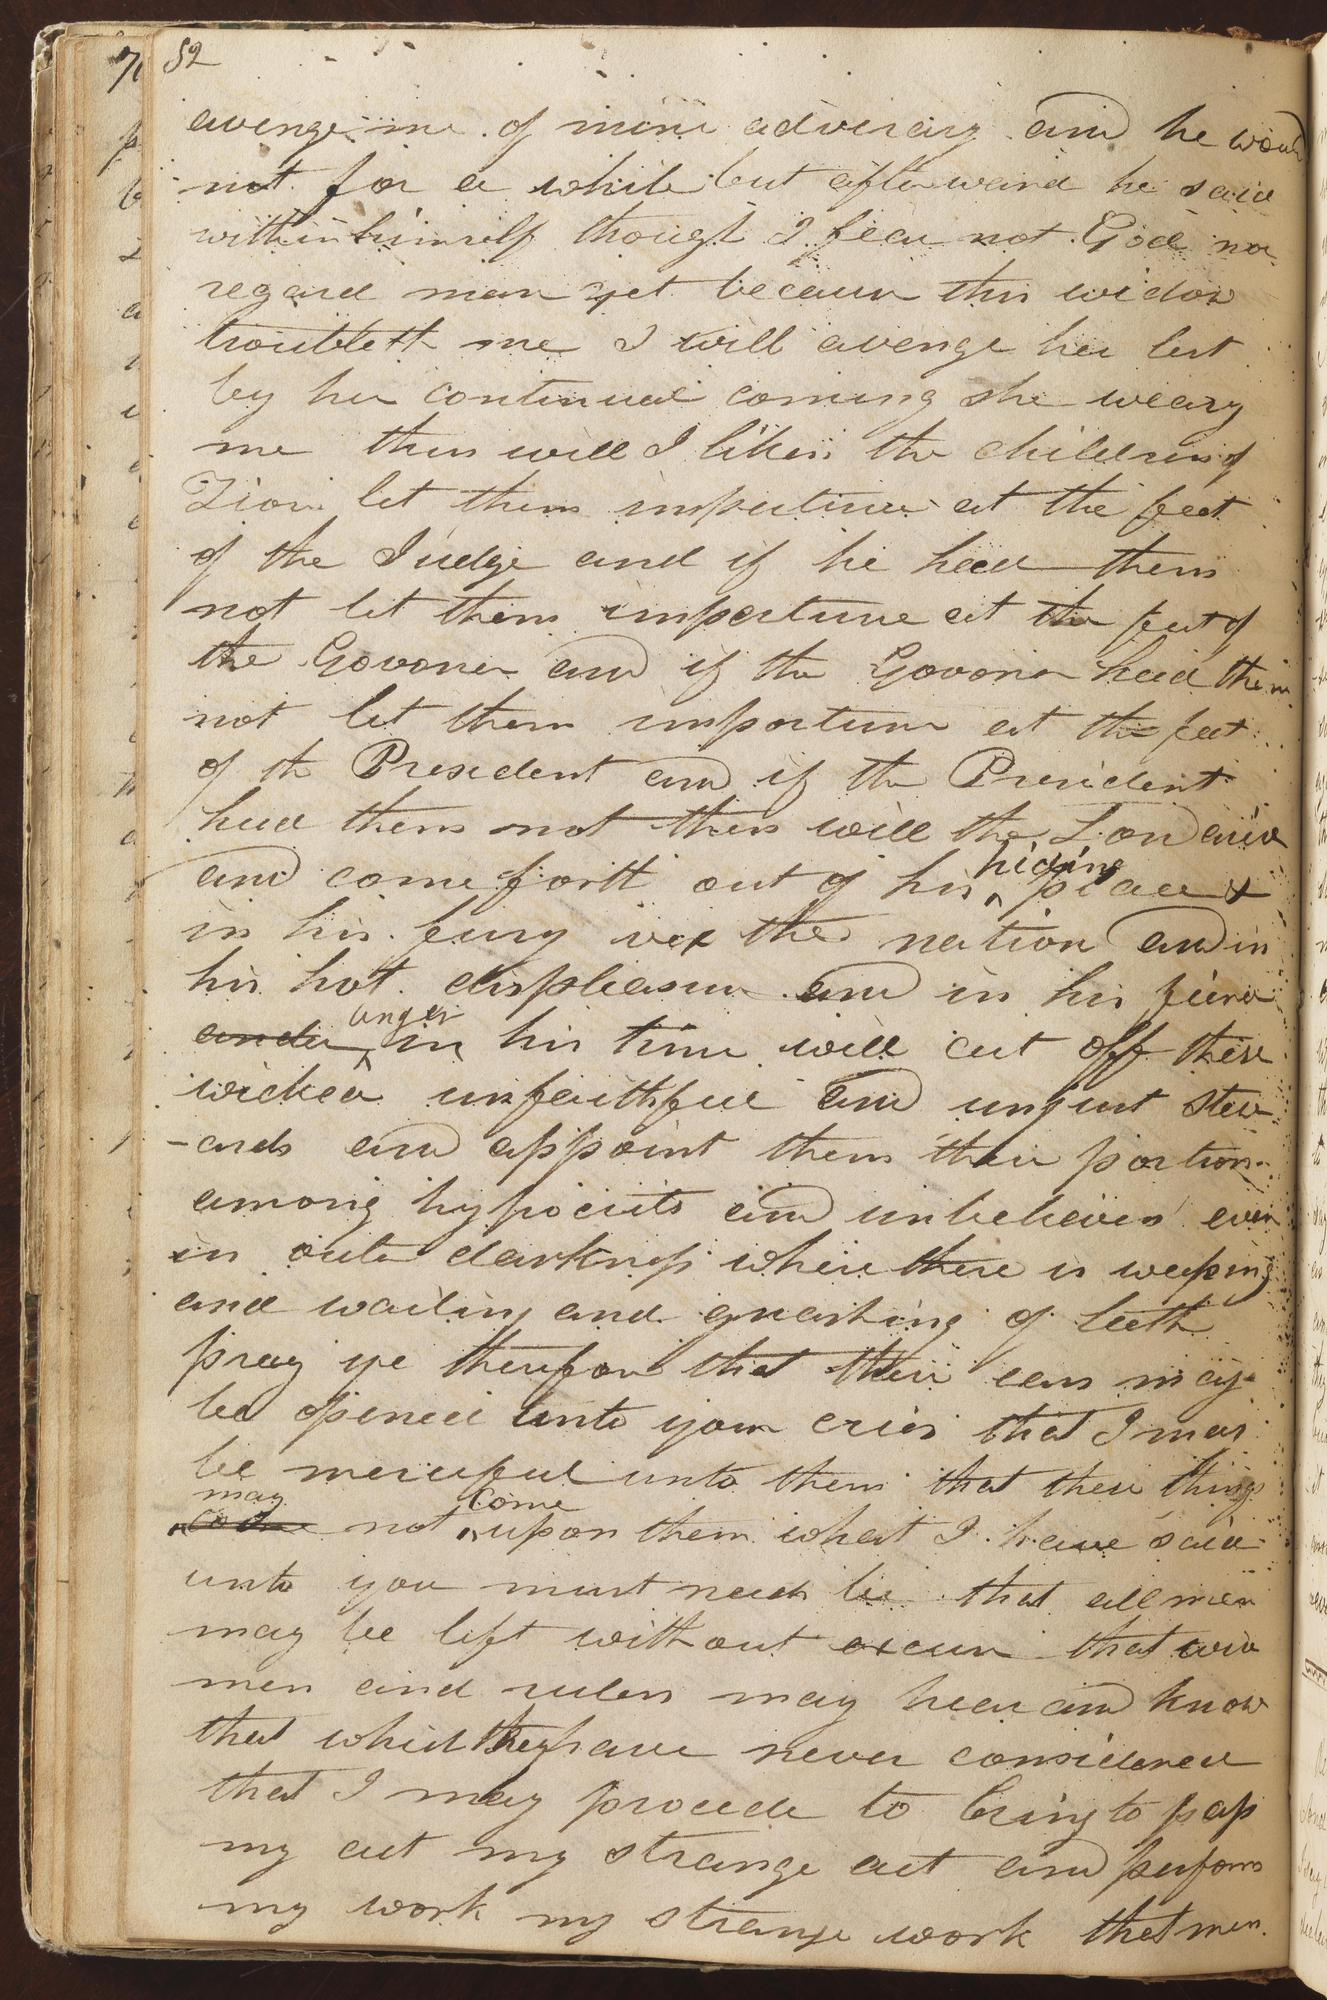 82
avenge me of mine adversary and he would
not for a while but afterward he said
within himself though I fear not God nor
regard man yet because this widow
troubleth me I will avenge her lest
by her continual coming she weary
me thus will I liken the children of
Zion let them importune at the feet
of the Judge and if he heed them
not let them importune at the feet of
the Govoner and if the Govoner heed them
not let them importune at the feet
of the President and if the President
heed them not then will the Lord arise
and come forth out of his hiding place &
in his fury vex the nation and in
his hot displeasure and in his fierce
anger in his time will cut off these
wicked unfaithful and unjust stew
-ards and appoint them their portion
among hypocrits and unbelievers even
in outer darkness where there is weeping
and wailing and gnashing of teeth
pray ye therefore that their ears may
be opened unto your cries that I may
be merciful unto them that these things
may not come upon them what I have said
unto you must needs be that all men
may be left without excuse that wise
men and rulers may hear and know
that which they have never considered
that I may procede to bring to pass
my act my strange act and perform
my work my strange work that men